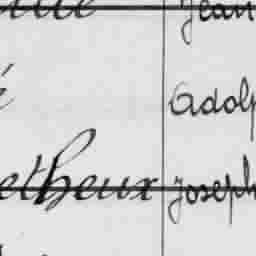 Jean
é Adolp
etheux Joseph